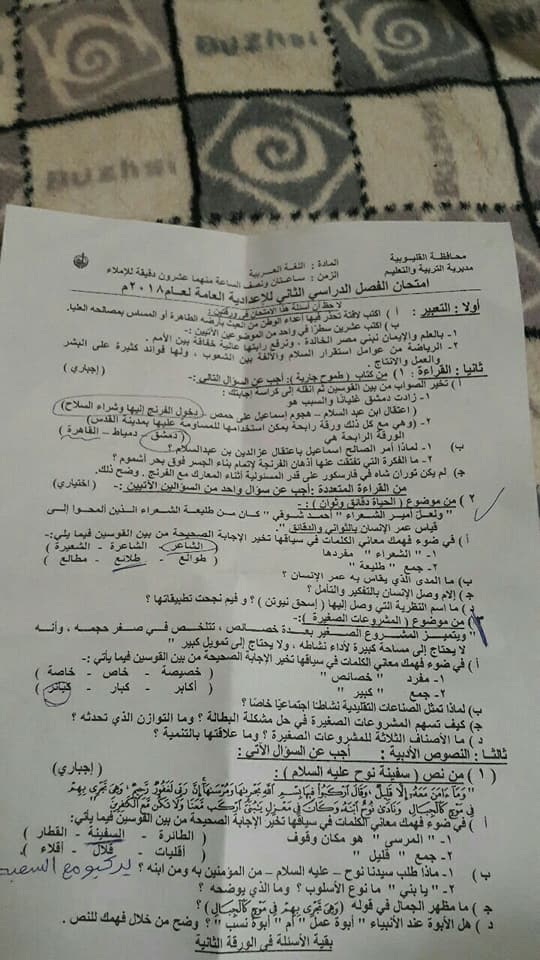 Buzhsi
Buzhsi
Buzhsi
محافظة القليوبية
مديرية التربية والتعليم
المادة : اللغة العربية
الزمن : ساعتان ونصف الساعة منهما عشرون دقيقة للإملاء
امتحان الفصل الدراسي الثاني للإعدادية العامة لعام ٢٠١٨م
لاحظ أن أسئلة هذا الامتحان في ورقتين :
أولا : التعبير : أ ) اكتب لافتة تحذر فيها أعداء الوطن من العبث بأرضه الطاهرة أو المساس بمصالحه العليا.
ب ) اكتب عشرين سطرًا في واحد من الموضوعين الآتيين:-
١- بالعلم والإيمان نبني مصر الخالدة ، ونرفع رايتها عالية خفاقة بين الأمم .
٢- الرياضة من عوامل استقرار السلام والألفة بين الشعوب ، ولها فوائد كثيرة على البشر
والعمل والإنتاج .
ثانيا : القراءة : ( ١ ) من كتاب ( طموح جارية ): أجب عن السؤال التالي:- ( إجباري )
أ ) تخير الصواب من بين القوسين ثم انقله إلى كراسة إجابتك :
١- زادت دمشق غليانًا والسبب هو
( اعتقال ابن عبد السلام – هجوم إسماعيل على حمص – دخول الفرنج إليها وشراء السلاح )
٢- (وهي مع كل ذلك ورقة رابحة يمكن استخدامها للمساومة عليها بمدينة القدس)
الورقة الرابحة هي ( دمشق – دمياط – القاهرة )
ب) ١- لماذا أمر الصالح اسماعيل باعتقال عزالدين بن عبدالسلام ؟
٢- ما الفكرة التي تفتقت عنها أذهان الفرنجة لإتمام بناء الجسر فوق بحر أشموم ؟
ج) لم يكن توران شاه في فارسكور على قدر المسئولية أثناء المعارك مع الفرنج . وضح ذلك.
من القراءة المتعددة :أجب عن سؤال واحد من السؤالين الآتيين :- (اختياري )
٢ ) من موضوع ( الحياة دقائق وثوان ) : -
" ولعل أمير الشعراء " أحمد شوقي " كان من طليعة الشعراء الذين ألمحوا إلى
قياس عمر الإنسان بالثواني والدقائق ".
أ ) في ضوء فهمك معاني الكلمات في سياقها تخير الإجابة الصحيحة من بين القوسين فيما يلي:-
١- " الشعراء " مفردها ( الشاعر – الشاعرة – الشعيرة )
٢- جمع " طليعة " ( طوالع – طلائع – مطالع )
ب) ما المدى الذي يقاس به عمر الإنسان ؟
ج) إلام وصل الإنسان بالتفكير والتأمل ؟
د) ما اسم النظرية التي وصل إليها ( إسحق نيوتن ) ؟ و فيم نجحت تطبيقاتها ؟
٣) من موضوع ( المشروعات الصغيرة ):-
" ويتميز المشروع الصغير بعدة خصائص ، تتلخص في صغر حجمه ، وأنه
لا يحتاج إلى مساحة كبيرة لأداء نشاطه ، ولا يحتاج إلى تمويل كبير "
أ ) في ضوء فهمك معاني الكلمات في سياقها تخير الإجابة الصحيحة من بين القوسين فيما يأتي:-
١- مفرد " خصائص " ( خصيصة – خاص – خاصة )
٢- جمع " كبير " ( أكابر – كبار – كبائر )
ب) لماذا تمثل الصناعات التقليدية نشاطا اجتماعيًا خاصًا ؟
ج) كيف تسهم المشروعات الصغيرة في حل مشكلة البطالة ؟ وما التوازن الذي تحدثه ؟
د ) ما الأصناف الثلاثة للمشروعات الصغيرة ؟ وما علاقتها بالتنمية ؟
ثالثا : النصوص الأدبية : أجب عن السؤال الآتي :
( ١ ) من نص ( سفينة نوح عليه السلام ) : (إجباري )
" وَمَا ءَامَنَ مَعَهُ إِلَّا قَلِيلٌ ، وَقَالَ ارْكَبُوا فِيهَا بِسْمِ اللَّهِ مَجْرِىٰهَا وَمُرْسَىٰهَا إِنَّ رَبِّي لَغَفُورٌ رَّحِيمٌ ، وَهِيَ تَجْرِي بِهِمْ
فِي مَوْجٍ كَالْجِبَالِ وَنَادَىٰ نُوحٌ ابْنَهُ وَكَانَ فِي مَعْزِلٍ يَا بُنَيَّ ارْكَب مَّعَنَا وَلَا تَكُن مَّعَ الْكَافِرِينَ "
أ ) في ضوء فهمك معاني الكلمات في سياقها تخير الإجابة الصحيحة من بين القوسين فيما يأتي:
١- " المرسى " هو مكان وقوف ( الطائرة – السفينة – القطار )
٢- جمع " قليل " ( أقليات – قلال – أقلاء )
ب) ١- ماذا طلب سيدنا نوح – عليه السلام – من المؤمنين به ومن ابنه ؟
٢- " يا بني " ما نوع الأسلوب ؟ وما الذي يوضحه ؟
ج ) ما مظهر الجمال في قوله ( وَهِيَ تَجْرِي بِهِمْ فِي مَوْجٍ كَالْجِبَالِ ) ؟
د ) هل الأبوة عند الأنبياء " أبوة عمل " أم " أبوة نسب " ؟ وضح من خلال فهمك للنص .
بقية الأسئلة في الورقة الثانية